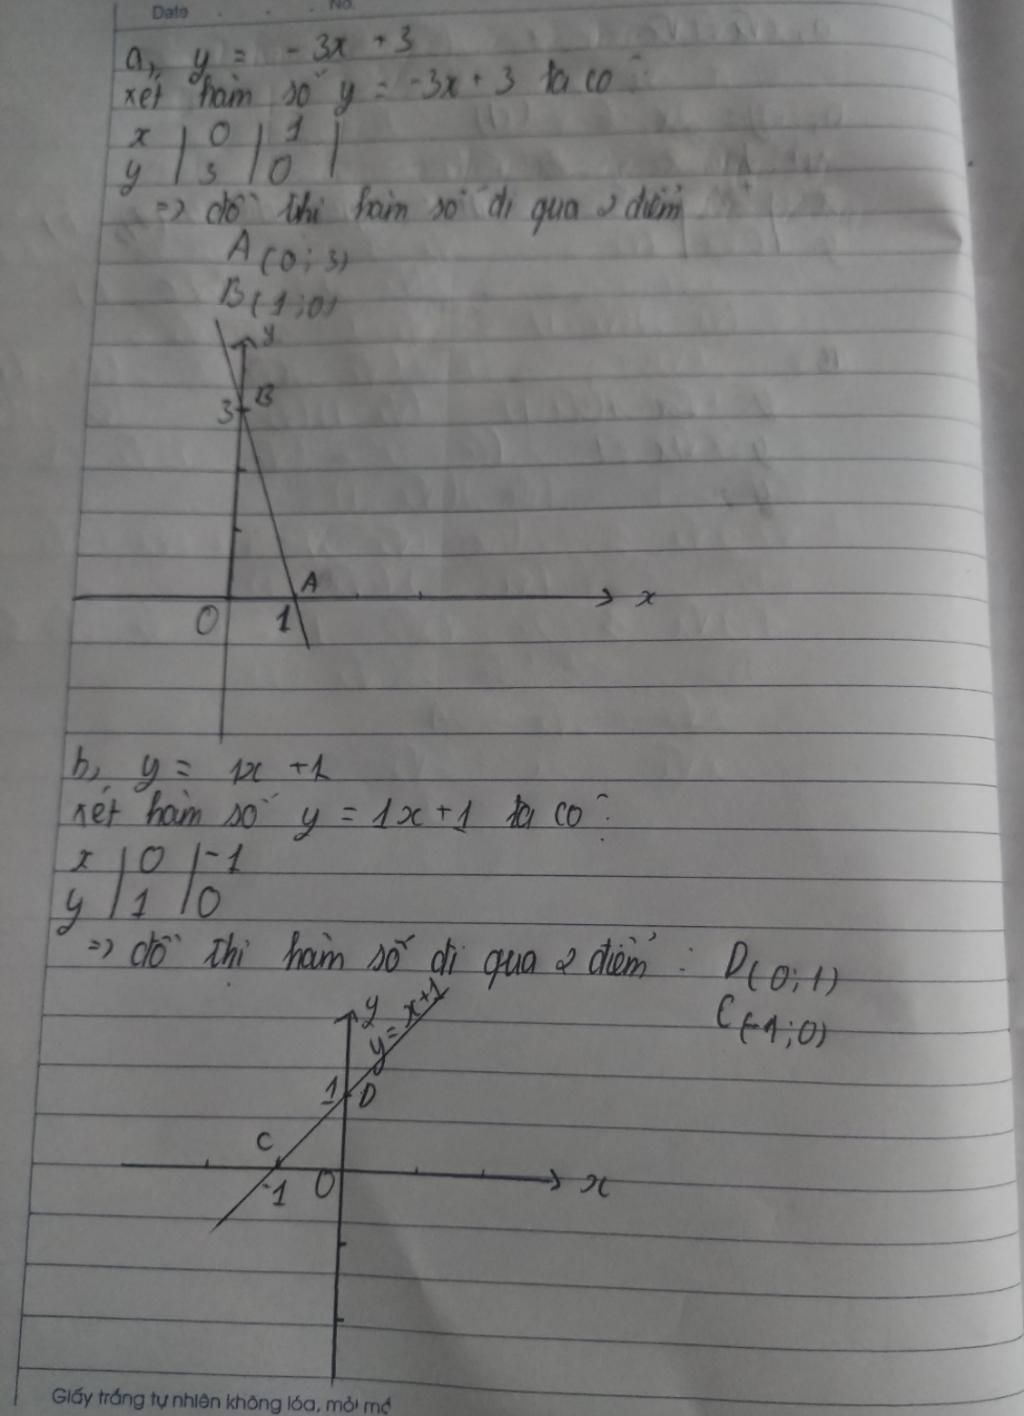 Date No.
a, y = -3x + 3
xét hàm số y = -3x + 3 ta có :
x | 0 | 1 |
y | 3 | 0 |
=> đồ thị hàm số đi qua 2 điểm
A (0; 3)
B (1; 0)
y
3 B
A
0 1 x
b, y = 1x + 1
xét hàm số y = 1x + 1 ta có :
x | 0 | -1
y | 1 | 0
=> đồ thị hàm số đi qua 2 điểm : D (0; 1)
C (-1; 0)
y y = x+1
1 D
C
-1 0 x
Giấy trắng tự nhiên không lóa, mỏi mắ